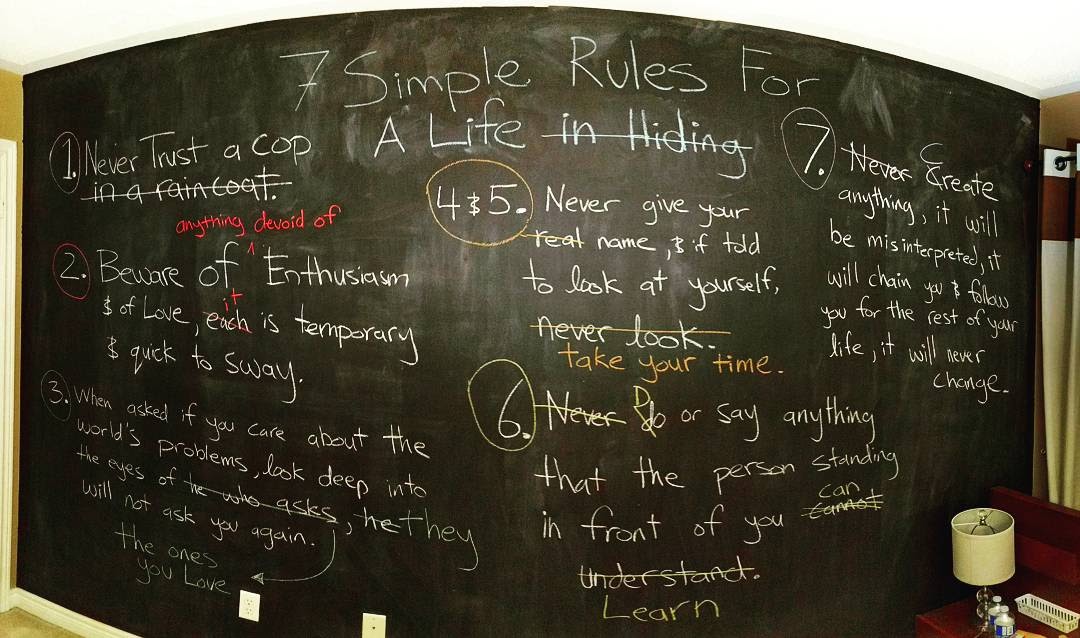 7 Simple Rules For
A Life in Hiding
1. Never Trust a cop
in a raincoat.
anything devoid of
2. Beware of ^ Enthusiasm
it
$ of Love, each is temporary
$ quick to sway.
3. When asked if you care about the
world's problems, look deep into
the eyes of he who asks, he They
will not ask you again.
the ones
you Love
4 $ 5. Never give your
real name, $ if told
to look at yourself,
never look.
take your time.
6. Never Do or say anything
that the person standing
can
in front of you cannot
understand.
Learn
7. Never Create
anything, it will
be misinterpreted, it
will chain you $ follow
you for the rest of your
life, it will never
change.